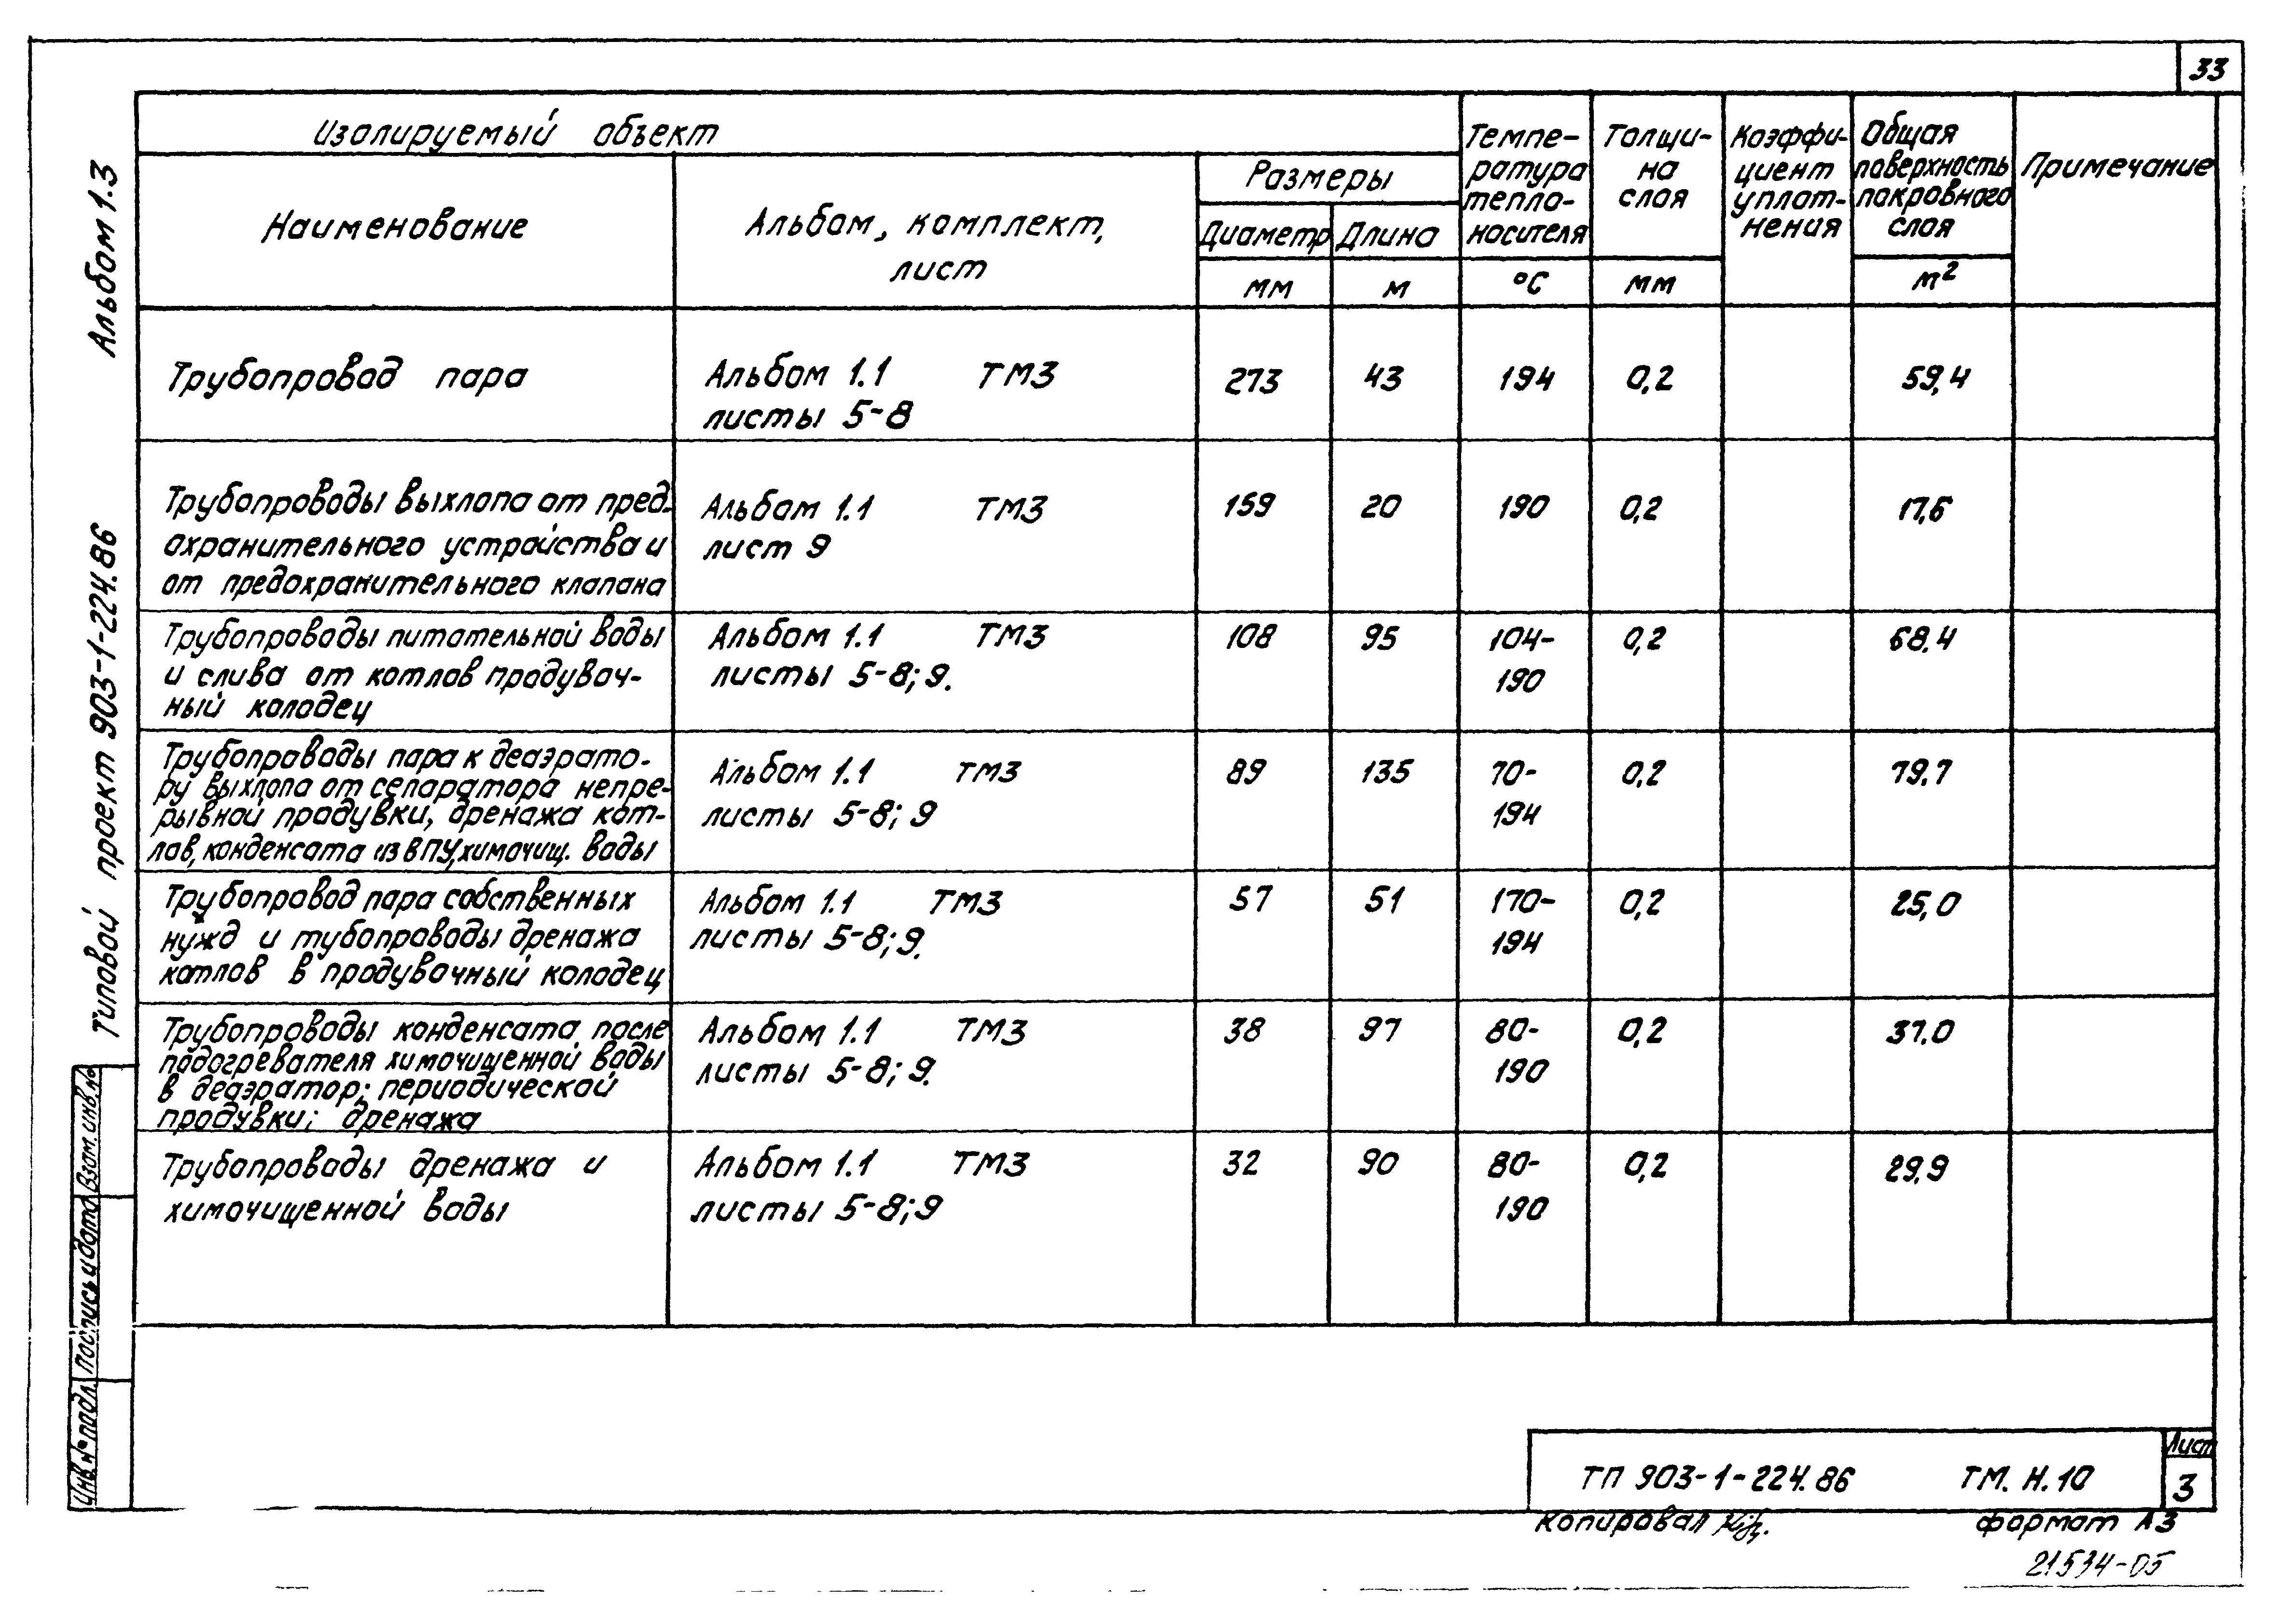 33
Изолируемый объект
Наименование
Альбом, комплект,
лист
Размеры
Диаметр
мм
Длина
м
Темпе-
ратура
тепло-
носителя
°С
Толщи-
на
слоя
мм
Коэффи-
циент
уплот-
нения
Общая
поверхность
покровного
слоя
м²
Примечание
Трубопровод пара
Альбом 1.1 ТМ3
листы 5-8
273 43 194 0,2 59,4
Трубопроводы выхлопа от пред-
охранительного устройства и
от предохранительного клапана
Альбом 1.1 ТМ3
лист 9
159 20 190 0,2 17,6
Трубопроводы питательной воды
и слива от котлов продувоч-
ный колодец
Альбом 1.1 ТМ3
листы 5-8; 9.
108 95 104- 0,2 68.4
190
Трубопроводы пара к деаэрато-
ру выхлопа от сепаратора непре-
рывной продувки, дренажа кот-
лов, конденсата из ВПУ, химочищ. воды
Альбом 1.1 ТМ3
листы 5-8; 9
89 135 70- 0,2 79,7
194
Трубопровод пара собственных
нужд и тубопроводы дренажа
котлов в продувочный колодец
Альбом 1.1 ТМ3
листы 5-8; 9.
57 51 170- 0,2 25,0
194
Трубопроводы конденсата после
подогревателя химочищенной воды
в деаэратор; периодической
продувки; дренажа
Альбом 1.1 ТМ3
листы 5-8; 9.
38 97 80- 0,2 37.0
190
Трубопроводы дренажа и
химочищенной воды
Альбом 1.1 ТМ3
листы 5-8; 9
32 90 80- 0,2 29,9
190
Альбом 1.3
Типовой проект 903-1-224.86
Взам. инв. №
Подпись и дата
Инв. № подл.
ТП 903-1-224.86 ТМ. Н. 10
Лист
3
Копировал
формат А3
21534-05